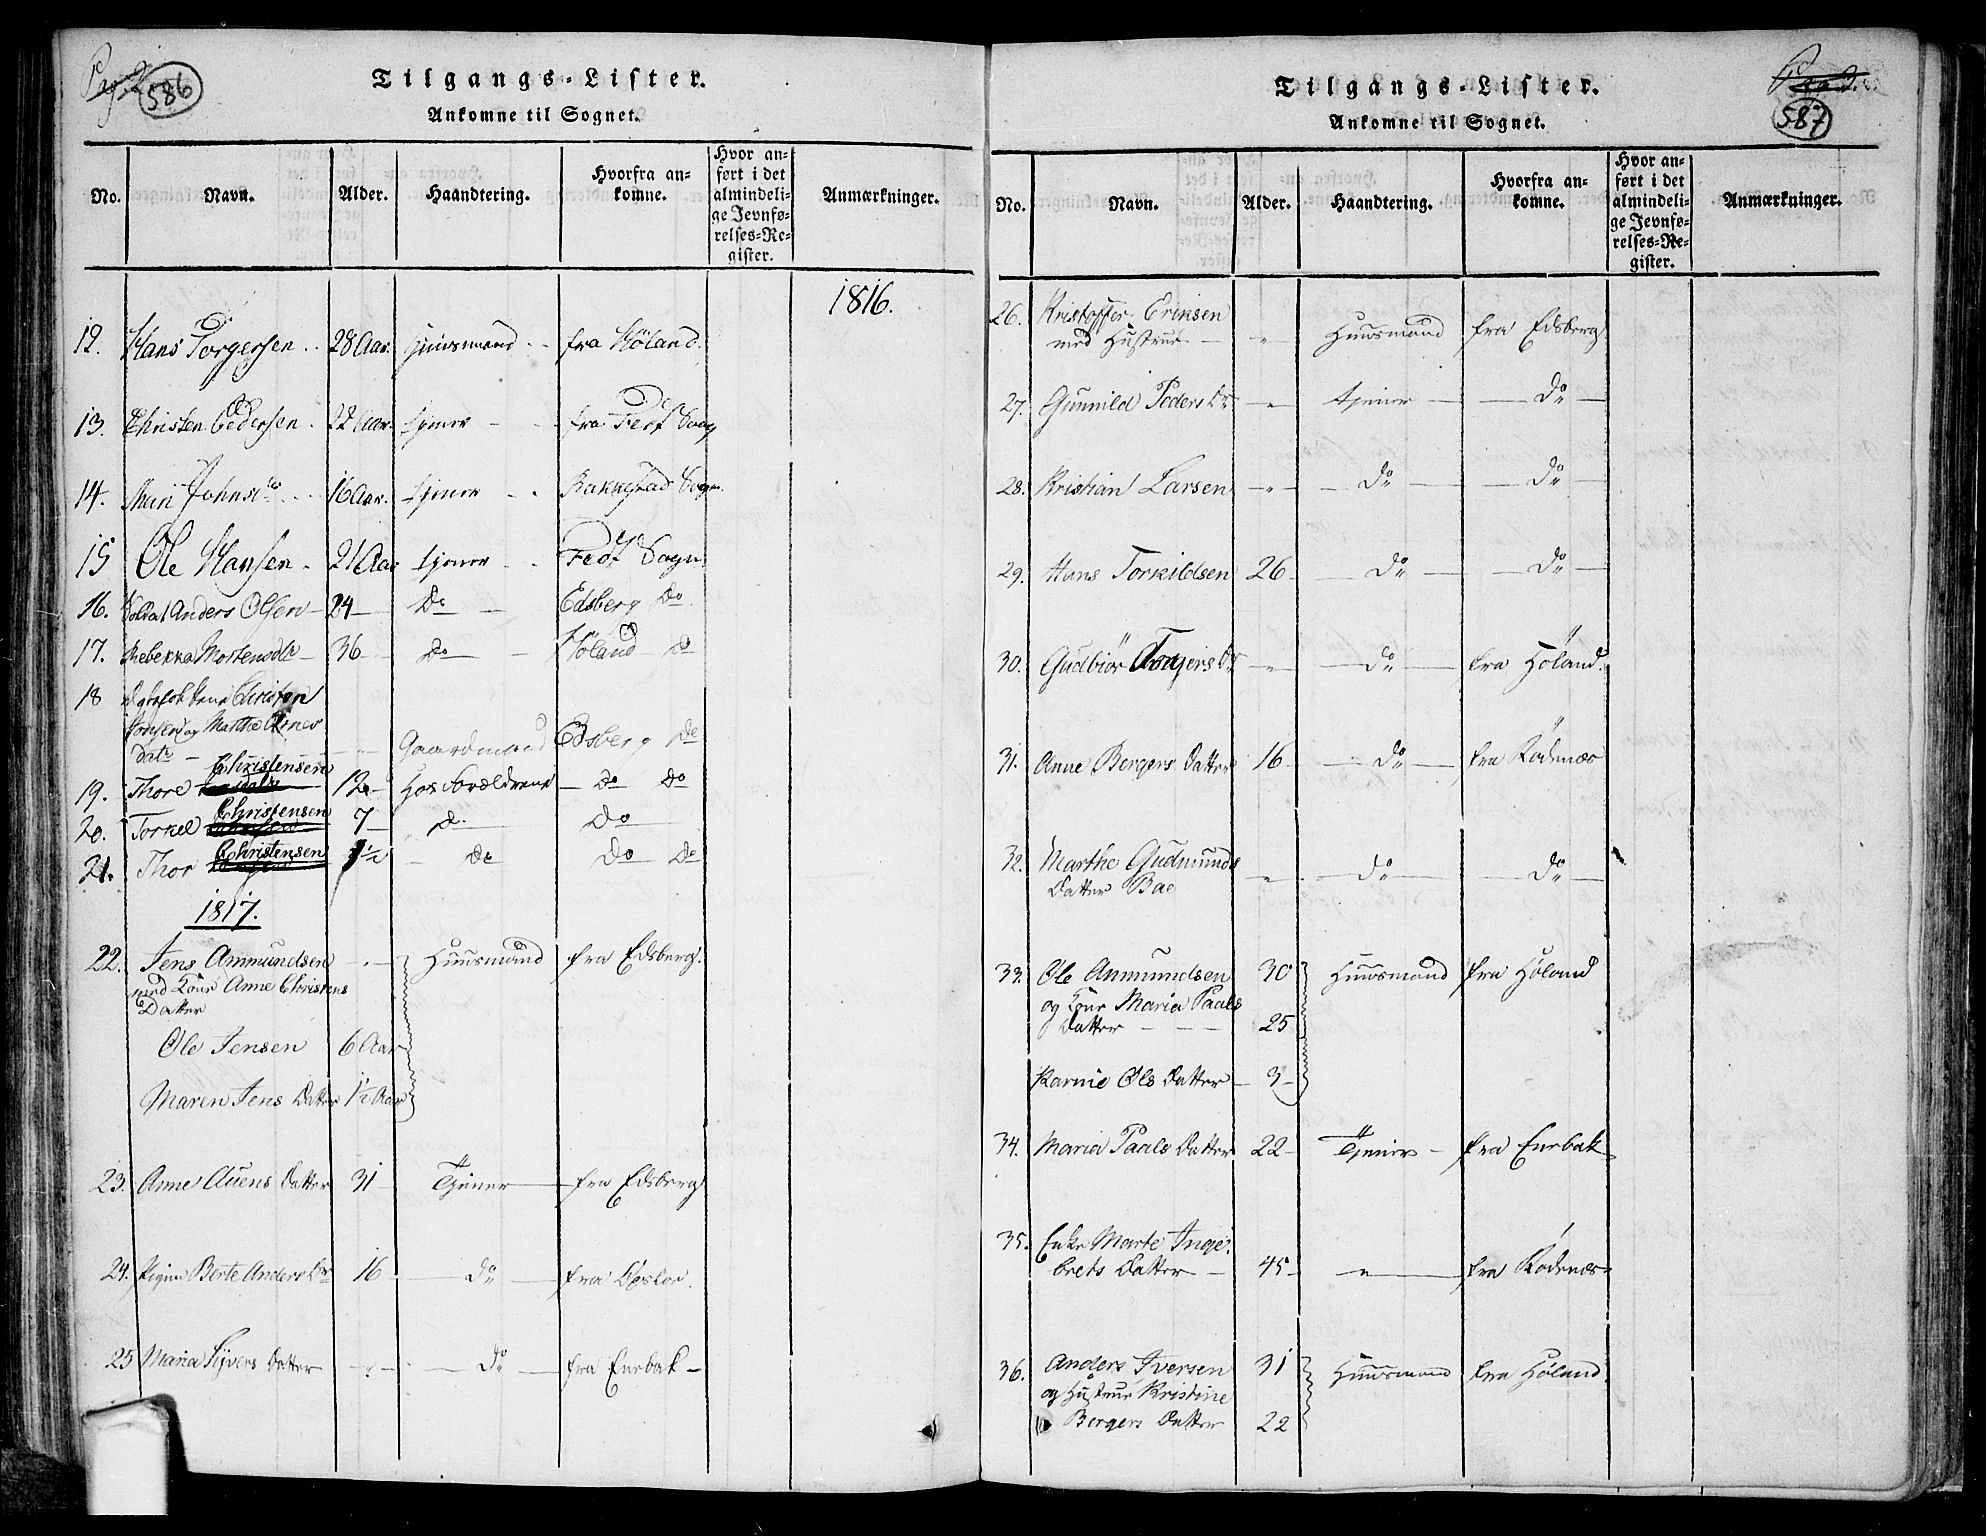 586
Tilgangs-Lister.
Ankomne til Sognet.
No. Navn. Alder. Haandtering. Hvorfra ankomne. Hvor anført i det almindelige Jevnførelses-Register. Anmærkninger.
1816.
12. Hans Torgersen 28 Aar. Huusmand fra Höland.
13. Christen Pedersen 22 Aar. Tjener fra Sogn
14. Johns 16 Aar. Tjener Rakkestad Sogn
15 Ole Hansen 21 Aar Tjener Sogn
16. Soldat Anders Olsen 24 Do Edsberg Do
17. Rebekka Mortensdtr 36 Do Höland Do
18 Christen
og Marthe
datr Gaardmand Edsberg Do
Christensen
19. Thore 12 Hos Forældrene Do Do
Christensen
20. Torkel 7 Do Do
Christensen
21. Thor 1½ Do Do Do
1817.
22. Jens Ammundsen Huusmand fra Edsberg.
med Kone Anne Christens
Datter
Ole Jensen 6 Aar
Maren Jens Datter 1½ Aar
23. Anne Auens Datter 31 Tjener fra Edsberg
24. Pigen Berte Anders Dr 16 Do fra
25 Maria Syvers Datter Do fra Enebak
587
Tilgangs-Lister.
Ankomne til Sognet.
No. Navn. Alder. Haandtering. Hvorfra ankomne. Hvor anført i det almindelige Jevnførelses-Register. Anmærkninger.
26. Kristoffer Eriksen
med Hustrue " Huusmand fra Edsberg
27. Gunnild Peders Dr " tjener Do
28. Kristian Larsen " Do Do
29. Hans Torkildsen 26 Do Do
30. Gudbiör Dr " Do fra Höland.
31. Anne Bergers Datter 16 Do fra Rödenæs
32. Marthe Gudmunds
Datter " Do Do
33. Ole Anmundsen 30 Huusmand fra Höland
og Kone Maria Paals
Datter 25
Karnie Ols Datter 3
34. Maria Paals Datter 22 Tjener fra Enebak
35. Enke Marte Inge
brets Datter 45 " fra Rödenæs
36. Anders Iversen 31 Huusmand fra Höland.
og Hustrue Kristine
Bergers Datter 22